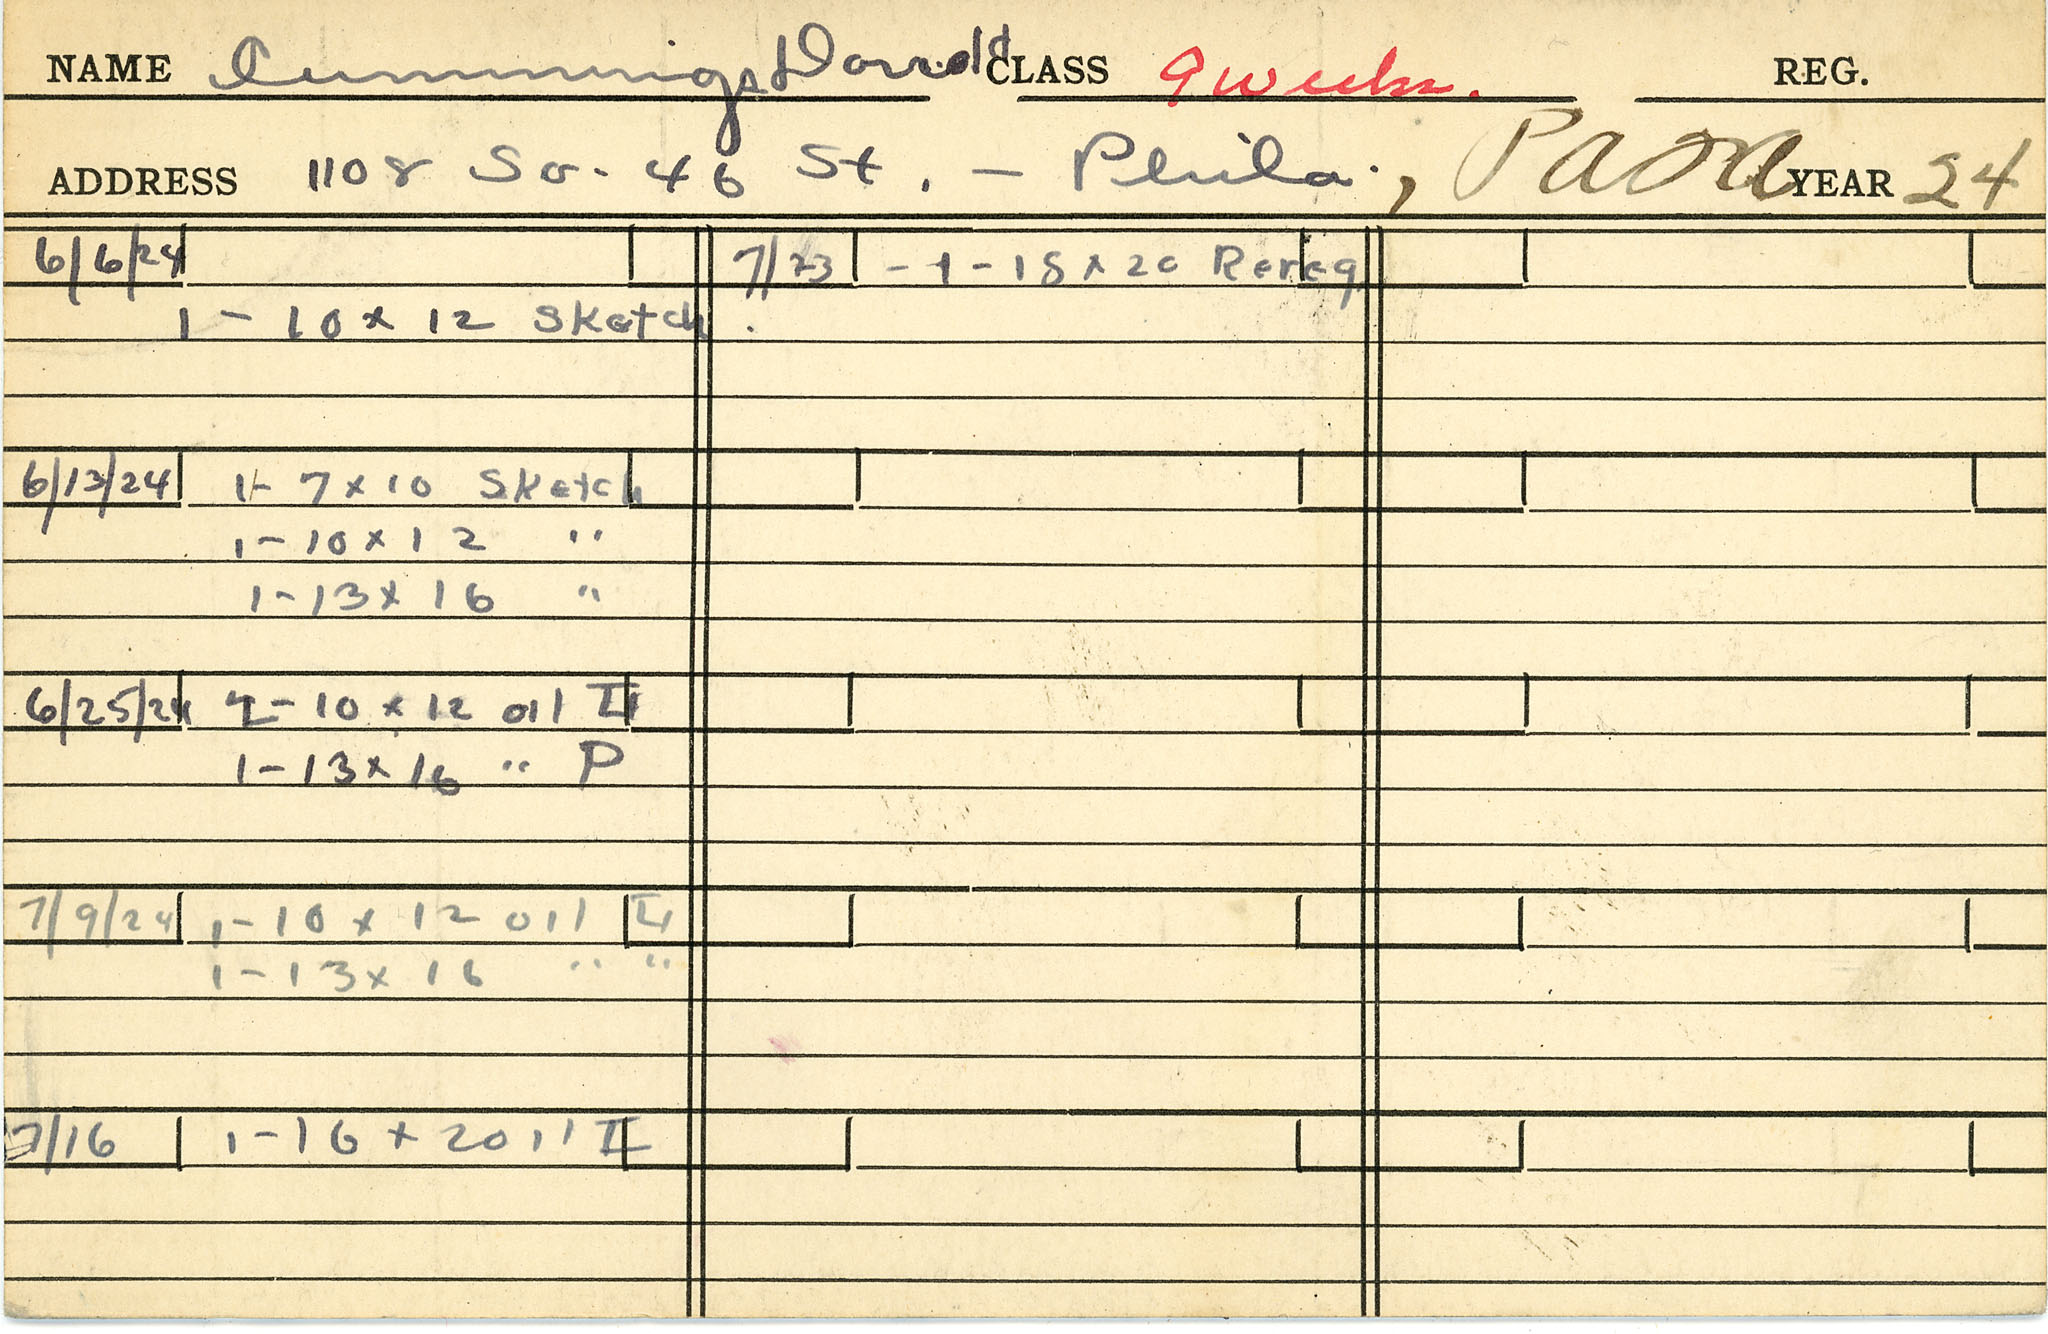 NAME Cummings David CLASS 9 weeks. REG.
ADDRESS 1108 So. 46 St. - Phila., YEAR 24
6/6/24
1 - 10 x 12 Sketch.
6/13/24 1- 7 x 10 Sketch
1 - 10 x 12 "
1 - 13 x 16 "
6/25/24 - 10 x 12 oil II
1 - 13 x 16 " P
7/9/24 1 - 10 x 12 oil II
1 - 13 x 16 " "
7/16 1 - 16 x 20 II
7/23 - 1 - 18 x 20 Rereg